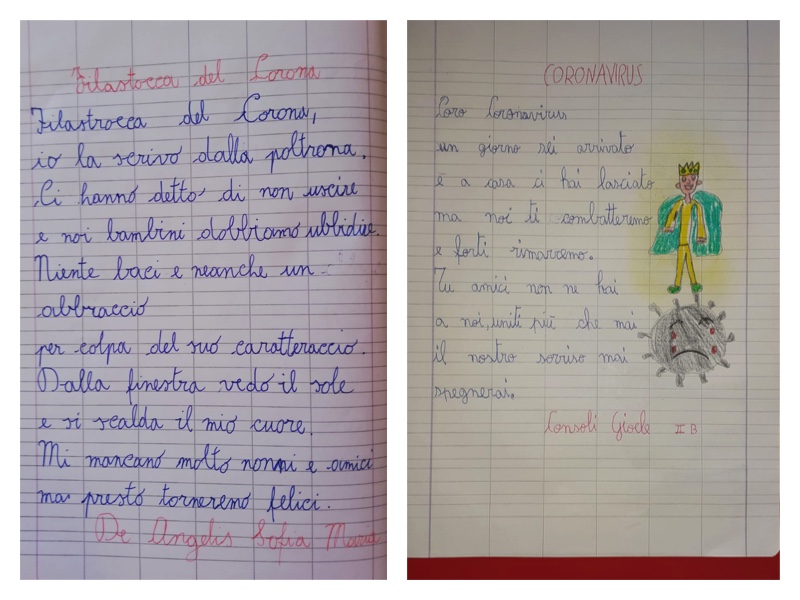 Filastrocca del Corona
Filastrocca del Corona,
io la scrivo dalla poltrona.
Ci hanno detto di non uscire
e noi bambini dobbiamo ubbidire.
Niente baci e neanche un
abbraccio
per colpa del suo caratteraccio.
Dalla finestra vedo il sole
e si scalda il mio cuore.
Mi mancano molto nonni e amici
ma presto torneremo felici.
De Angelis Sofia Maria
CORONAVIRUS
Caro Coronavirus
un giorno sei arrivato
e a casa ci hai lasciato
ma noi ti combatteremo
e forti rimarremo.
Tu amici non ne hai
a noi, uniti più che mai
il nostro sorriso mai
spegnerai.
Consoli Gioele II B